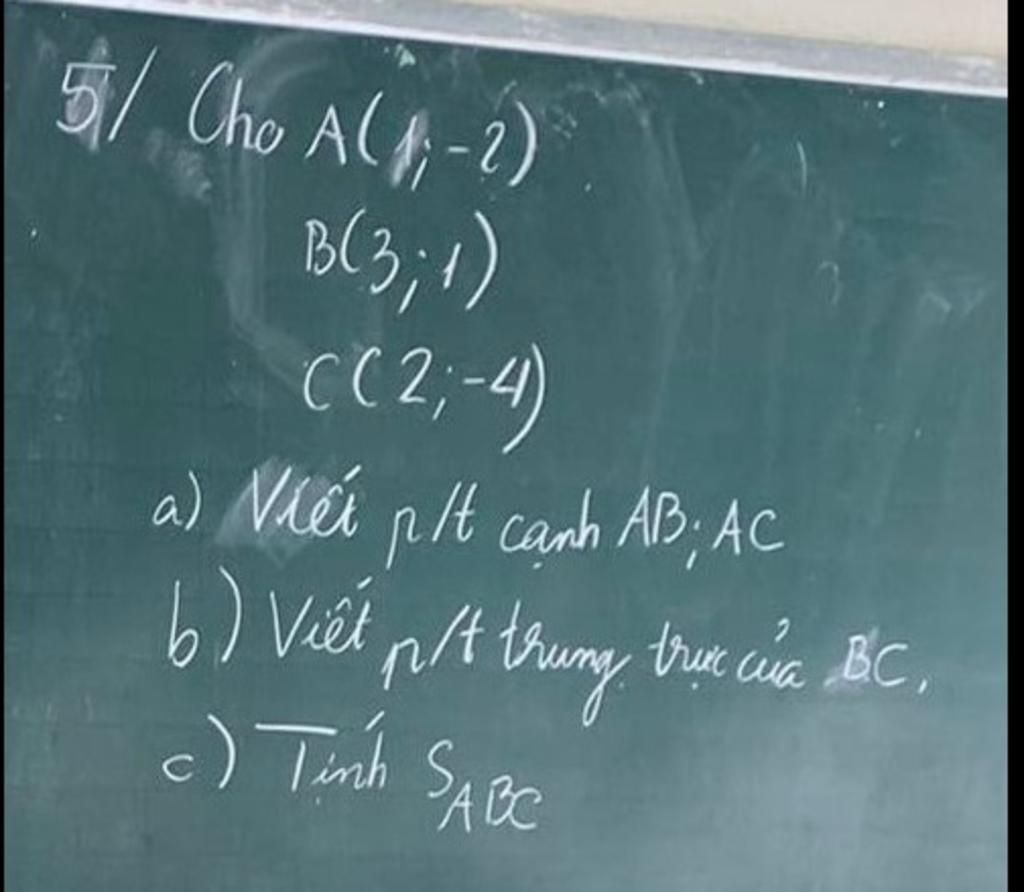 5/ Cho A(1;-2)
B(3;1)
C(2;-4)
a) Viết p/t cạnh AB; AC
b) Viết p/t trung trực của BC.
c) Tính S_ABC